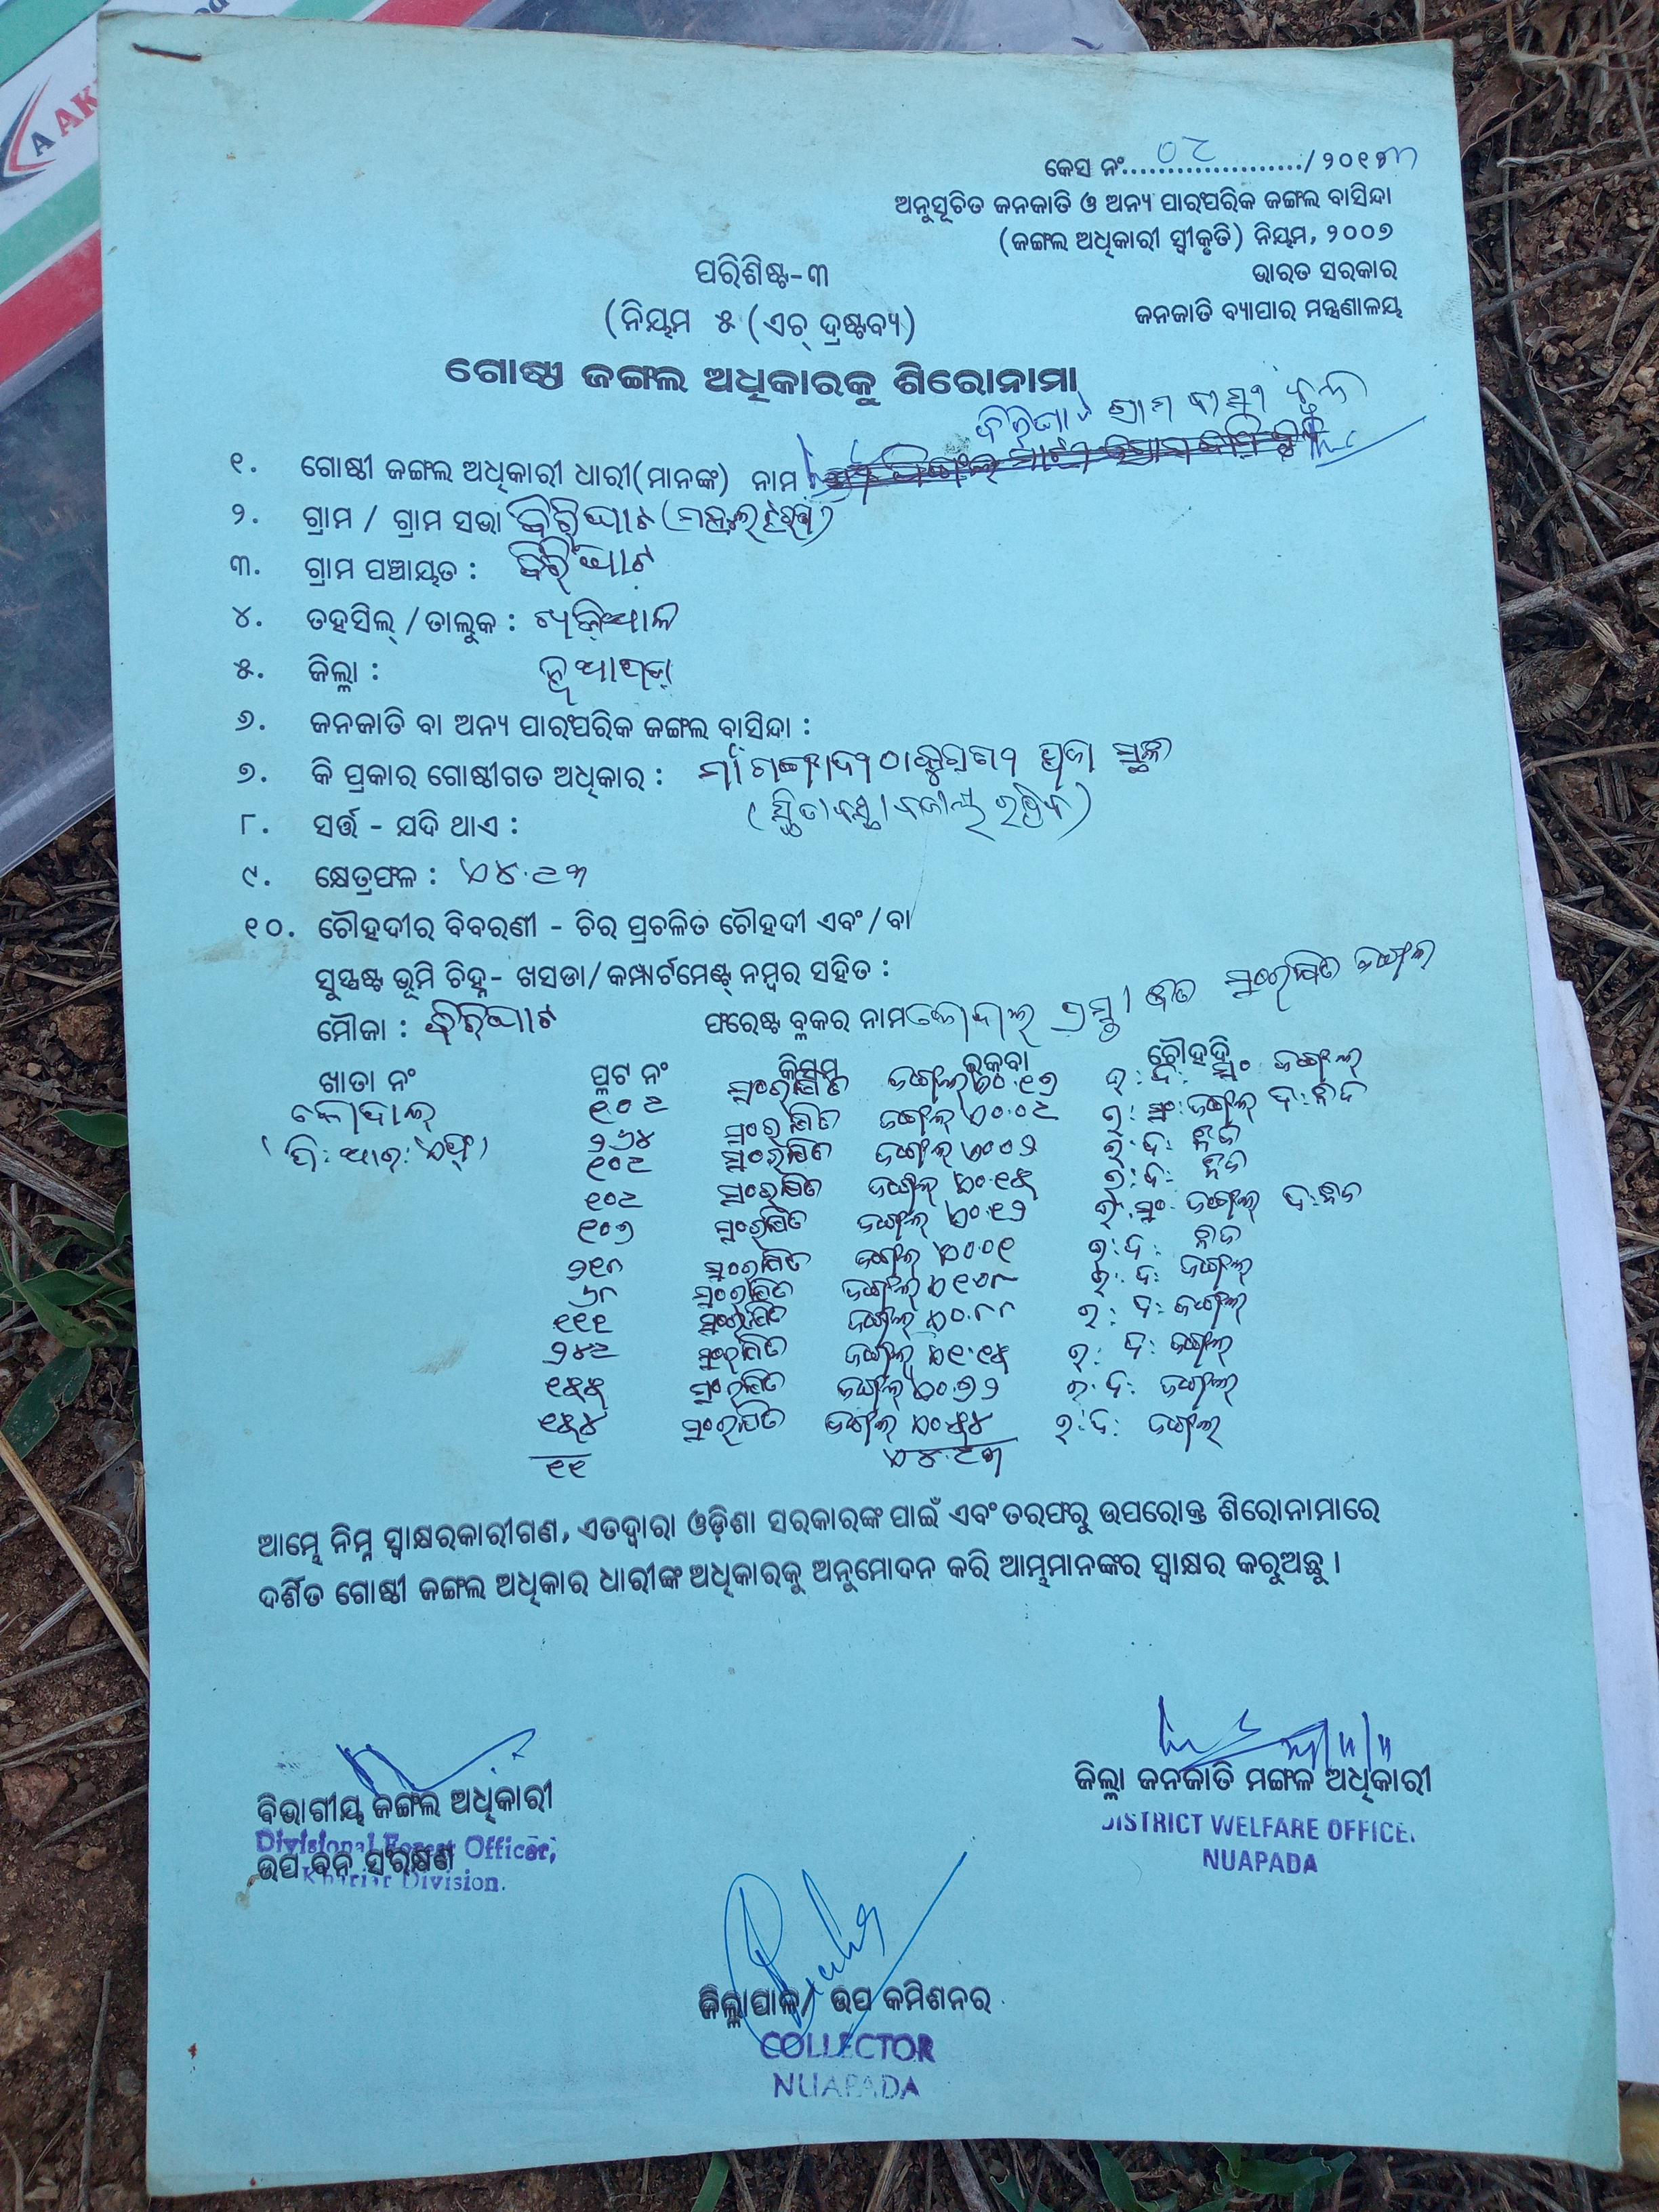 A AK
କେସ ନଂ...୦୯.../ ୨୦୧୩
ଅନୁସୂଚିତ ଜନଜାତି ଓ ଅନ୍ୟ ପାରଂପରିକ ଜଙ୍ଗଲ ବାସିନ୍ଦା
(ଜଙ୍ଗଲ ଅଧିକାରୀ ସ୍ୱୀକୃତି) ନିୟମ, ୨୦୦୭
ଭାରତ ସରକାର
ଜନଜାତି ବ୍ୟାପାର ମନ୍ତ୍ରଣାଳୟ
ପରିଶିଷ୍ଟ-୩
(ନିୟମ ୫ (ଏଚ୍ ଦ୍ରଷ୍ଟବ୍ୟ)
ଗୋଷ୍ଠୀ ଜଙ୍ଗଲ ଅଧିକାରକୁ ଶିରୋନାମା
୧. ଗୋଷ୍ଠୀ ଜଙ୍ଗଲ ଅଧିକାରୀ ଧାରୀ(ମାନଙ୍କ) ନାମ
୨. ଗ୍ରାମ / ଗ୍ରାମ ସଭା ବିରିଘାଟ
୩. ଗ୍ରାମ ପଞ୍ଚାୟତ : ବିରିଘାଟ
୪. ତହସିଲ୍ / ତାଲୁକ : ଖଡ଼ିଆଳ
୫. ଜିଲ୍ଲା : ନୂଆପଡ଼ା
୬. ଜନଜାତି ବା ଅନ୍ୟ ପାରଂପରିକ ଜଙ୍ଗଲ ବାସିନ୍ଦା :
୭. କି ପ୍ରକାର ଗୋଷ୍ଠୀଗତ ଅଧିକାର : ମାଁ ପୂଜା ସ୍ଥଳ
୮. ସର୍ତ୍ତ - ଯଦି ଥାଏ :
୯. କ୍ଷେତ୍ରଫଳ : ଏ୪.୯୩
୧୦. ଚୌହଦୀର ବିବରଣୀ - ଚିର ପ୍ରଚଳିତ ଚୌହଦୀ ଏବଂ / ବା
ସୁସ୍ପଷ୍ଟ ଭୂମି ଚିହ୍ନ - ଖସଡା / କମ୍ପାର୍ଟମେଣ୍ଟ୍ ନମ୍ବର ସହିତ :
ମୌଜା : ବିରିଘାଟ ଫରେଷ୍ଟ ବ୍ଲକର ନାମ ସଂରକ୍ଷିତ ଜଙ୍ଗଲ
ଖାତା ନଂ ପ୍ଲଟ ନଂ କିସମ ରକବା ଚୌହଦି
କୋଦାଲ୍ ୧୦୯ ସଂରକ୍ଷିତ ଜଙ୍ଗଲ୍ ଉ: ଦ: ସଂ ଜଙ୍ଗଲ୍
(ପି: ଆର: ଏଫ୍) ୨୬୪ ସଂରକ୍ଷିତ ଜଙ୍ଗଲ୍ ଏ୦.୦୯ ଉ: ସଂ: ଜଙ୍ଗଲ୍ ଦ: ନିଜ
୧୦୯ ସଂରକ୍ଷିତ ଜଙ୍ଗଲ୍ ଉ: ଦ: ନିଜ
୧୦୯ ସଂରକ୍ଷିତ ଜଙ୍ଗଲ୍ ଏ୦.୧୫ ଉ: ଦ: ନିଜ
୧୦୭ ସଂରକ୍ଷିତ ଜଙ୍ଗଲ୍ ଏ୦.୧୨ ଉ: ସଂ: ଜଙ୍ଗଲ୍ ଦ: ନିଜ
୨୧୮ ସଂରକ୍ଷିତ ଜଙ୍ଗଲ୍ ଏ୦.୦୧ ଉ: ଦ: ନିଜ
୬୮ ସଂରକ୍ଷିତ ଜଙ୍ଗଲ୍ ଉ: ଦ: ଜଙ୍ଗଲ୍
୧୧୧ ସଂରକ୍ଷିତ ଜଙ୍ଗଲ୍ ଏ୦.୮୮ ଉ: ଦ: ଜଙ୍ଗଲ୍
୨୪୯ ସଂରକ୍ଷିତ ଜଙ୍ଗଲ୍ ଏ୧.୧୫ ଉ: ଦ: ଜଙ୍ଗଲ୍
୧୫୫ ସଂରକ୍ଷିତ ଜଙ୍ଗଲ୍ ଏ୦.୭୨ ଉ: ଦ: ଜଙ୍ଗଲ୍
୧୫୪ ସଂରକ୍ଷିତ ଜଙ୍ଗଲ୍ ଏ୦.୫୪ ଉ: ଦ: ଜଙ୍ଗଲ୍
୧୧ ଏ୪.୯୩
ଆମ୍ଭେ ନିମ୍ନ ସ୍ୱାକ୍ଷରକାରୀଗଣ, ଏତଦ୍ୱାରା ଓଡ଼ିଶା ସରକାରଙ୍କ ପାଇଁ ଏବଂ ତରଫରୁ ଉପରୋକ୍ତ ଶିରୋନାମାରେ
ଦର୍ଶିତ ଗୋଷ୍ଠୀ ଜଙ୍ଗଲ ଅଧିକାର ଧାରୀଙ୍କ ଅଧିକାରକୁ ଅନୁମୋଦନ କରି ଆମ୍ଭମାନଙ୍କର ସ୍ୱାକ୍ଷର କରୁଅଛୁ ।
ବିଭାଗୀୟ ଜଙ୍ଗଲ ଅଧିକାରୀ
Divisional Forest Officer,
ଉପ ବନ ସଂରକ୍ଷଣ
Khariar Division.
ଜିଲ୍ଲା ଜନଜାତି ମଙ୍ଗଳ ଅଧିକାରୀ
DISTRICT WELFARE OFFICE.
NUAPADA
ଜିଲ୍ଲାପାଳ/ ଉପ କମିଶନର
COLLECTOR
NUAPADA